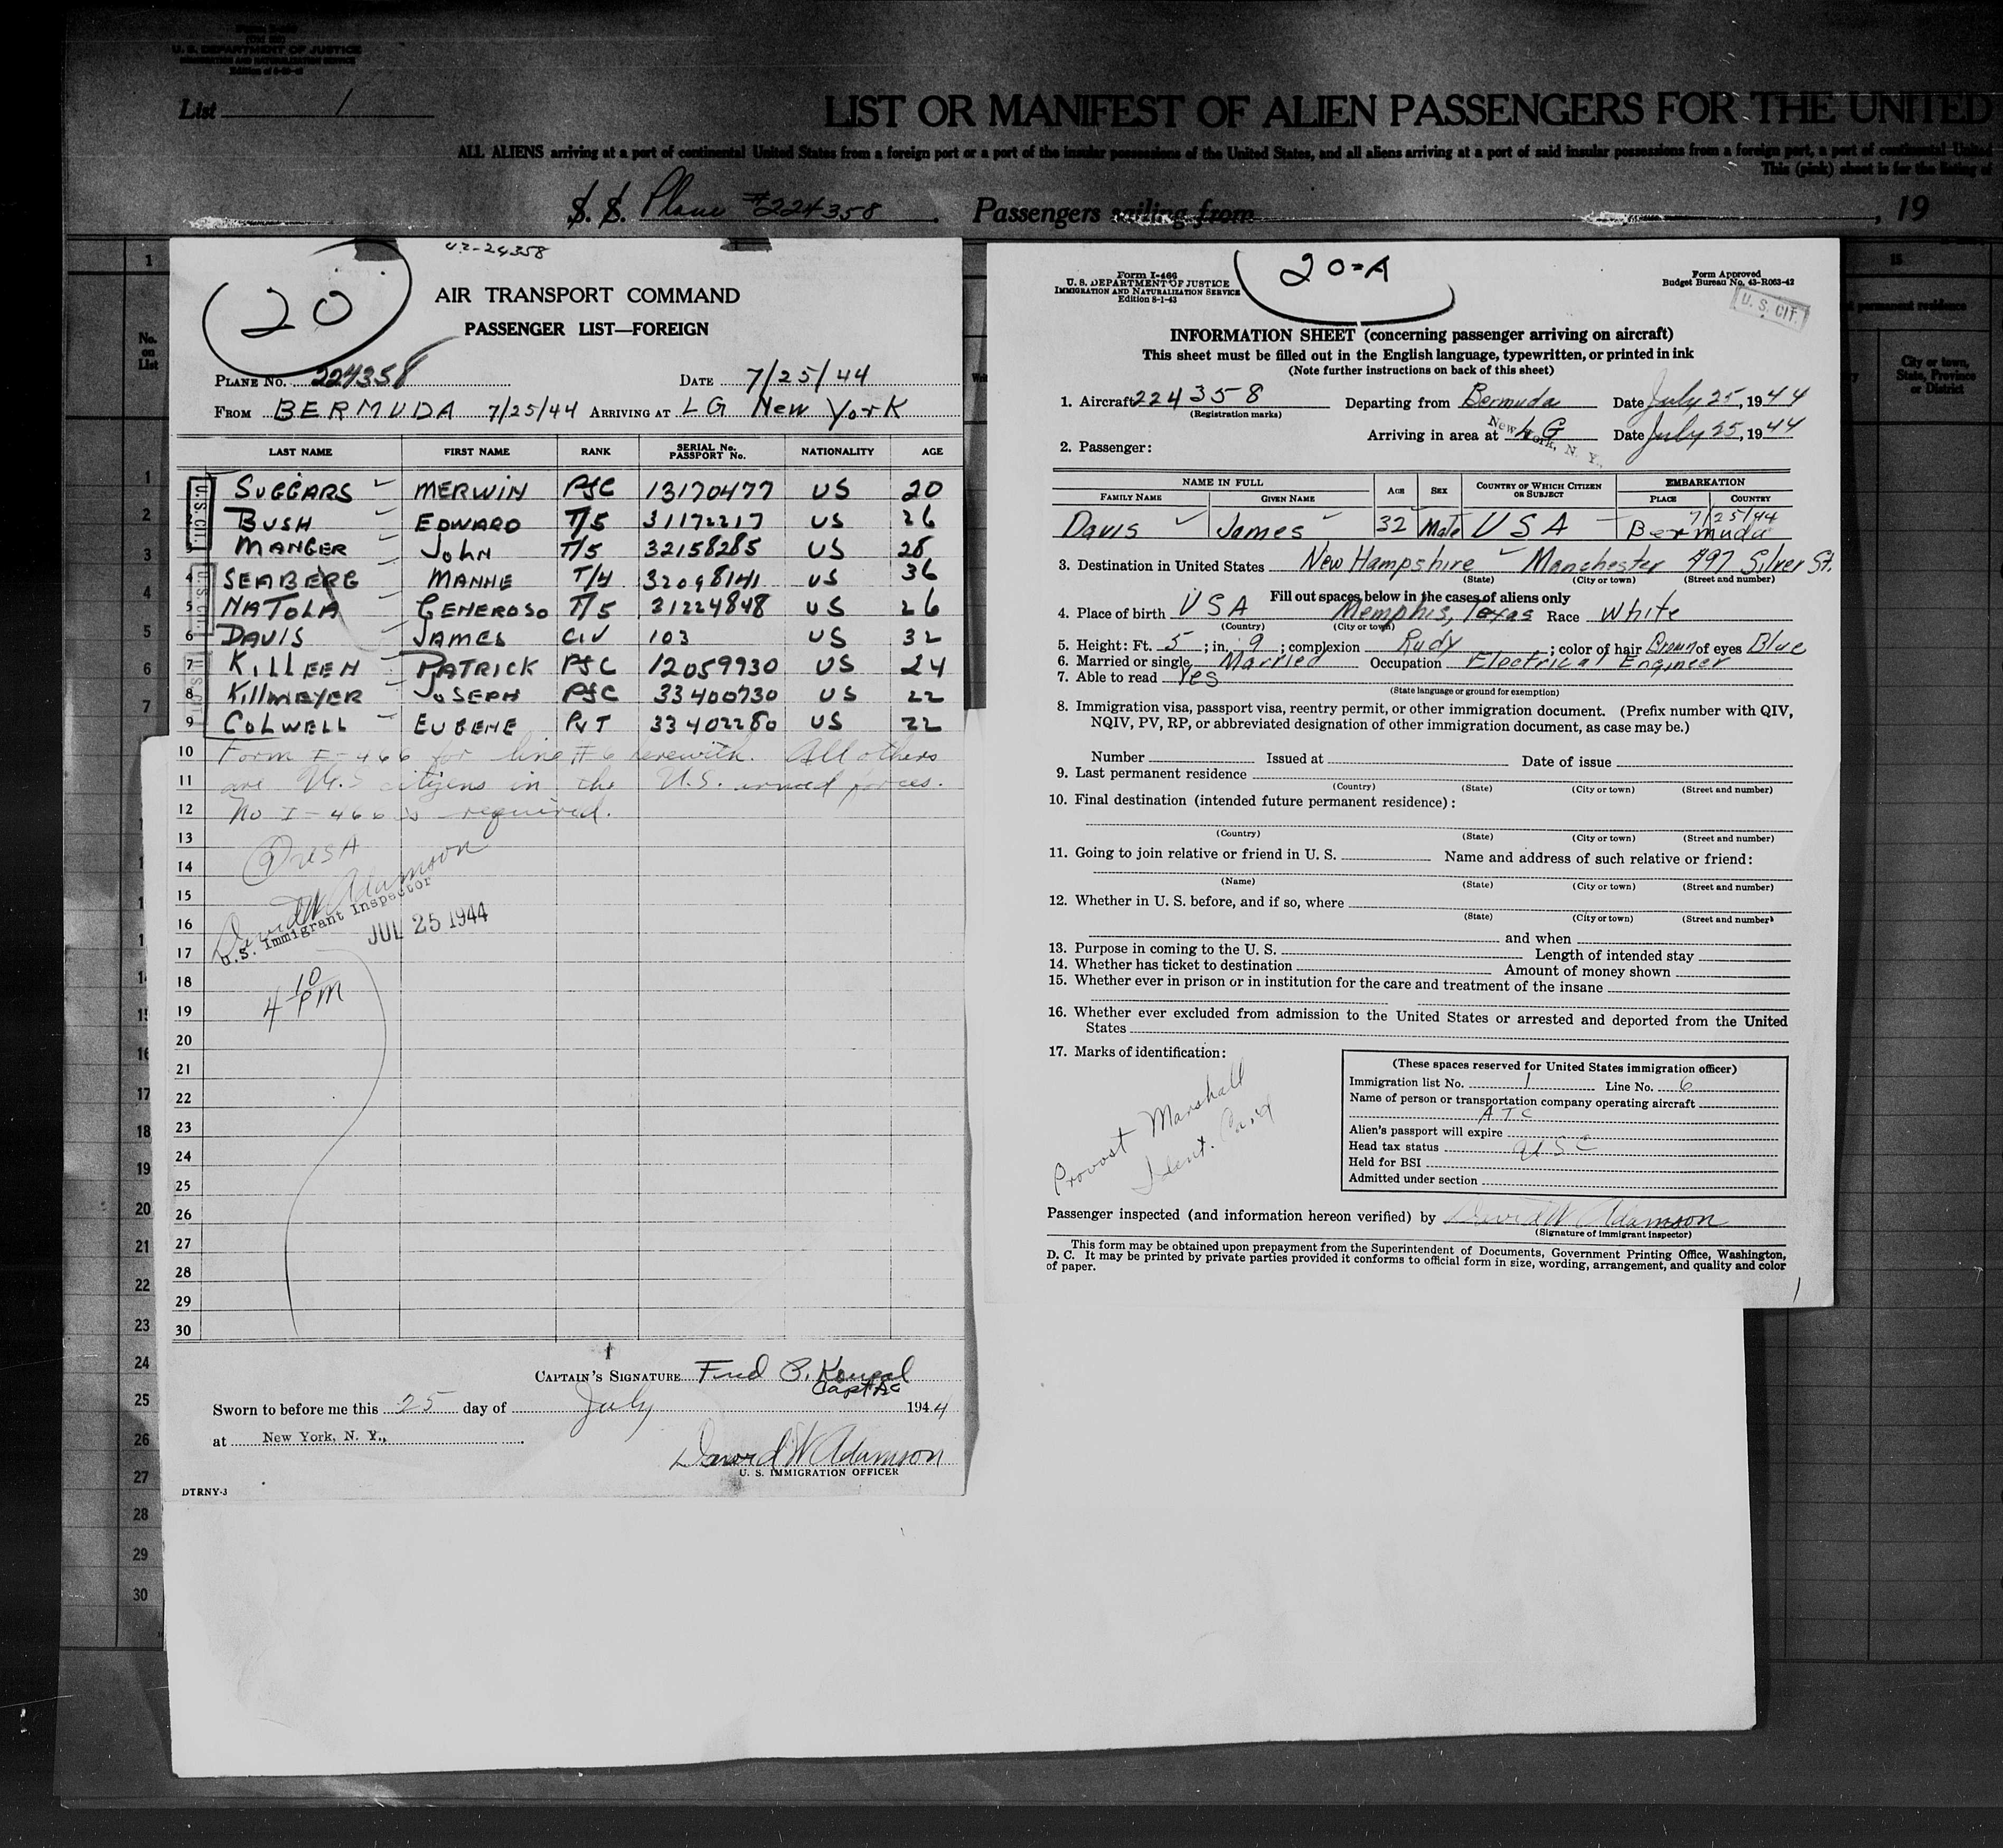 U. S. DEPARTMENT OF JUSTICE
IMMIGRATION AND NATURALIZATION SERVICE
List 1
LIST OR MANIFEST OF ALIEN PASSENGERS FOR THE UNITED
ALL ALIENS arriving at a port of continental United States from a foreign port or a port of the insular possessions of the United States, and all aliens arriving at a port of said insular possessions from a foreign port, a port of continental United
This (pink) sheet is for the listing of
S. S. Plane #224358 Passengers sailing from , 19
42-24358
20
AIR TRANSPORT COMMAND
PASSENGER LIST—FOREIGN
PLANE NO. 224358 DATE 7/25/44
FROM BERMUDA 7/25/44 ARRIVING AT LG New York
LAST NAME FIRST NAME RANK SERIAL No. PASSPORT No. NATIONALITY AGE
1 SUGGARS MERWIN PfC 13170477 US 20
2 BUSH EDWARD T/5 31172217 US 26
3 MANGER JOHN T/5 32158285 US 28
4 SEABERG MANNE T/4 32098141 US 36
5 NATOLA GENEROSO T/5 31224848 US 26
6 DAVIS JAMES CIV 103 US 32
7 KILLEEN PATRICK PfC 12059930 US 24
8 KILLMEYER JOSEPH PfC 33400730 US 22
9 COLWELL EUGENE PVT 33402280 US 22
U.S. CIT.
10 Form I-466 for line #6 herewith. All others
11 are U.S. citizens in the U.S. armed forces.
12 No I-466 is required.
13
14
David W Adamson
15
U.S. Immigrant Inspector
16
JUL 25 1944
17
18
4 10 PM
19
20
21
22
23
24
25
26
27
28
29
30
CAPTAIN'S SIGNATURE Fred
Capt AC
Sworn to before me this 25 day of July 1944
at New York, N. Y.,
David W Adamson
U. S. IMMIGRATION OFFICER
DTRNY-3
20-A
Form I-466
U. S. DEPARTMENT OF JUSTICE
IMMIGRATION AND NATURALIZATION SERVICE
Edition 8-1-43
Form Approved
Budget Bureau No. 43-R063-42
U. S. CIT.
INFORMATION SHEET (concerning passenger arriving on aircraft)
This sheet must be filled out in the English language, typewritten, or printed in ink
(Note further instructions on back of this sheet)
1. Aircraft 224358 Departing from Bermuda Date July 25, 1944
(Registration marks)
Arriving in area at LG Date July 25, 1944
New York, N. Y.,
2. Passenger:
NAME IN FULL AGE SEX COUNTRY OF WHICH CITIZEN OR SUBJECT EMBARKATION
FAMILY NAME GIVEN NAME PLACE COUNTRY
7/25/44
Davis James 32 Male USA Bermuda
3. Destination in United States New Hampshire Manchester 497 Silver St.
(State) (City or town) (Street and number)
Fill out spaces below in the cases of aliens only
4. Place of birth USA Memphis, Texas Race White
(Country) (City or town)
5. Height: Ft. 5 ; in. 9 ; complexion Rudy ; color of hair Brown of eyes Blue
6. Married or single Married Occupation Electrical Engineer
7. Able to read Yes
(State language or ground for exemption)
8. Immigration visa, passport visa, reentry permit, or other immigration document. (Prefix number with QIV,
NQIV, PV, RP, or abbreviated designation of other immigration document, as case may be.)
Number Issued at Date of issue
9. Last permanent residence
(Country) (State) (City or town) (Street and number)
10. Final destination (intended future permanent residence):
(Country) (State) (City or town) (Street and number)
11. Going to join relative or friend in U. S. Name and address of such relative or friend:
(Name) (State) (City or town) (Street and number)
12. Whether in U. S. before, and if so, where
(State) (City or town) (Street and number)
and when
13. Purpose in coming to the U. S. Length of intended stay
14. Whether has ticket to destination Amount of money shown
15. Whether ever in prison or in institution for the care and treatment of the insane
16. Whether ever excluded from admission to the United States or arrested and deported from the United
States
17. Marks of identification:
Provost Marshall
Ident. Card
(These spaces reserved for United States immigration officer)
Immigration list No. 1 Line No. 6
Name of person or transportation company operating aircraft
ATC
Alien's passport will expire
Head tax status USC
Held for BSI
Admitted under section
Passenger inspected (and information hereon verified) by David W Adamson
(Signature of immigrant inspector)
This form may be obtained upon prepayment from the Superintendent of Documents, Government Printing Office, Washington,
D. C. It may be printed by private parties provided it conforms to official form in size, wording, arrangement, and quality and color
of paper.
No. on List
City or town, State, Province or District